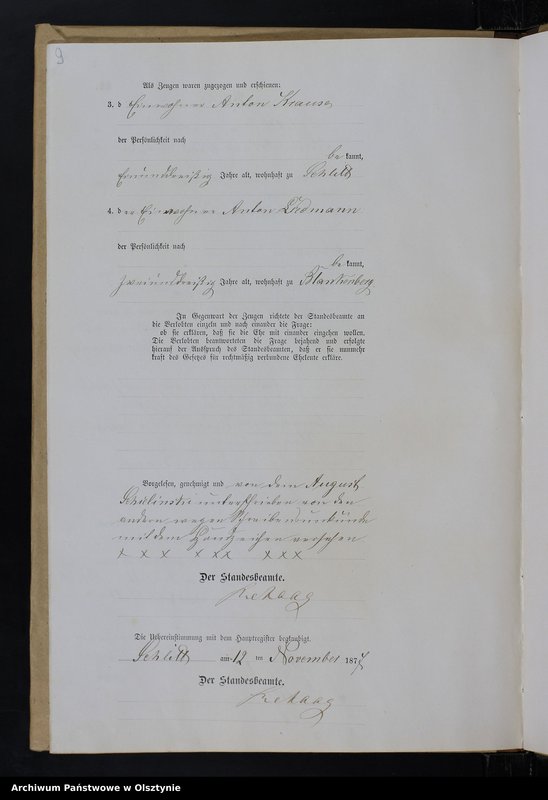 9
Als Zeugen waren zugezogen und erschienen:
3. d Einwohner Anton Krause
der Persönlichkeit nach
be kannt,
Jahre alt, wohnhaft zu Schlitt
4. d er Einwohner Anton Erdmann
der Persönlichkeit nach
be kannt,
zweiunddreißig Jahre alt, wohnhaft zu Blankenberg
In Gegenwart der Zeugen richtete der Standesbeamte an
die Verlobten einzeln und nach einander die Frage:
ob sie erklären, daß sie die Ehe mit einander eingehen wollen.
Die Verlobten beantworteten die Frage bejahend und erfolgte
hierauf der Ausspruch des Standesbeamten, daß er sie nunmehr
kraft des Gesetzes für rechtmäßig verbundene Eheleute erkläre.
Vorgelesen, genehmigt und von dem August
unterschrieben von den
andern wegen Schreibensunkunde
mit dem Handzeichen versehen
x x x x x x x x x
Der Standesbeamte.
Die Uebereinstimmung mit dem Hauptregister beglaubigt.
Schlitt am 12 ten November 187
Der Standesbeamte.
Archiwum Państwowe w Olsztynie